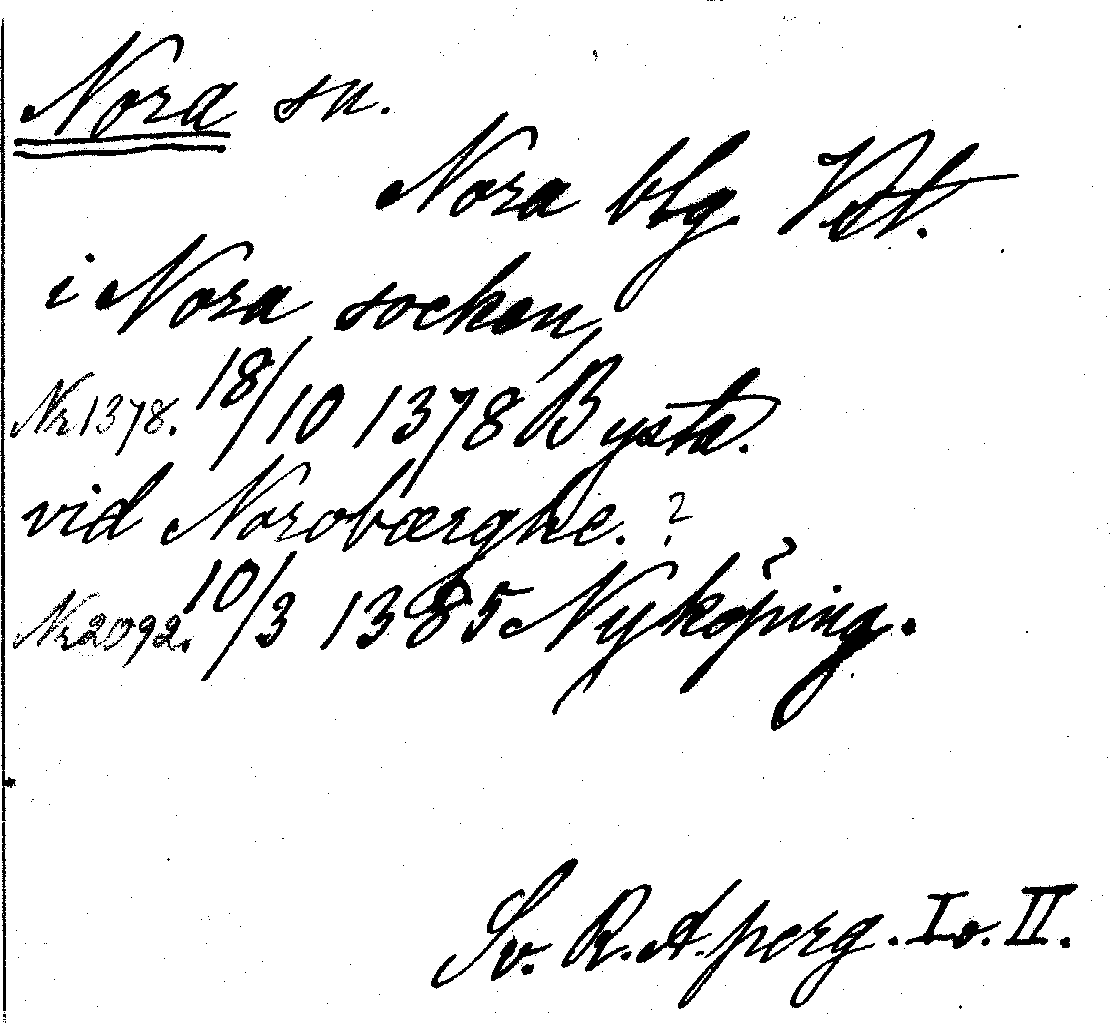 Nora sn.
Nora blg Vstl.
i Nora socken,
Nr 1378. 18/10 1378 Bysta.
vid Norobærghe. ?
Nr 2092. 10/3 1385 Nyköping.
Sv. R. A. perg. I o. II.